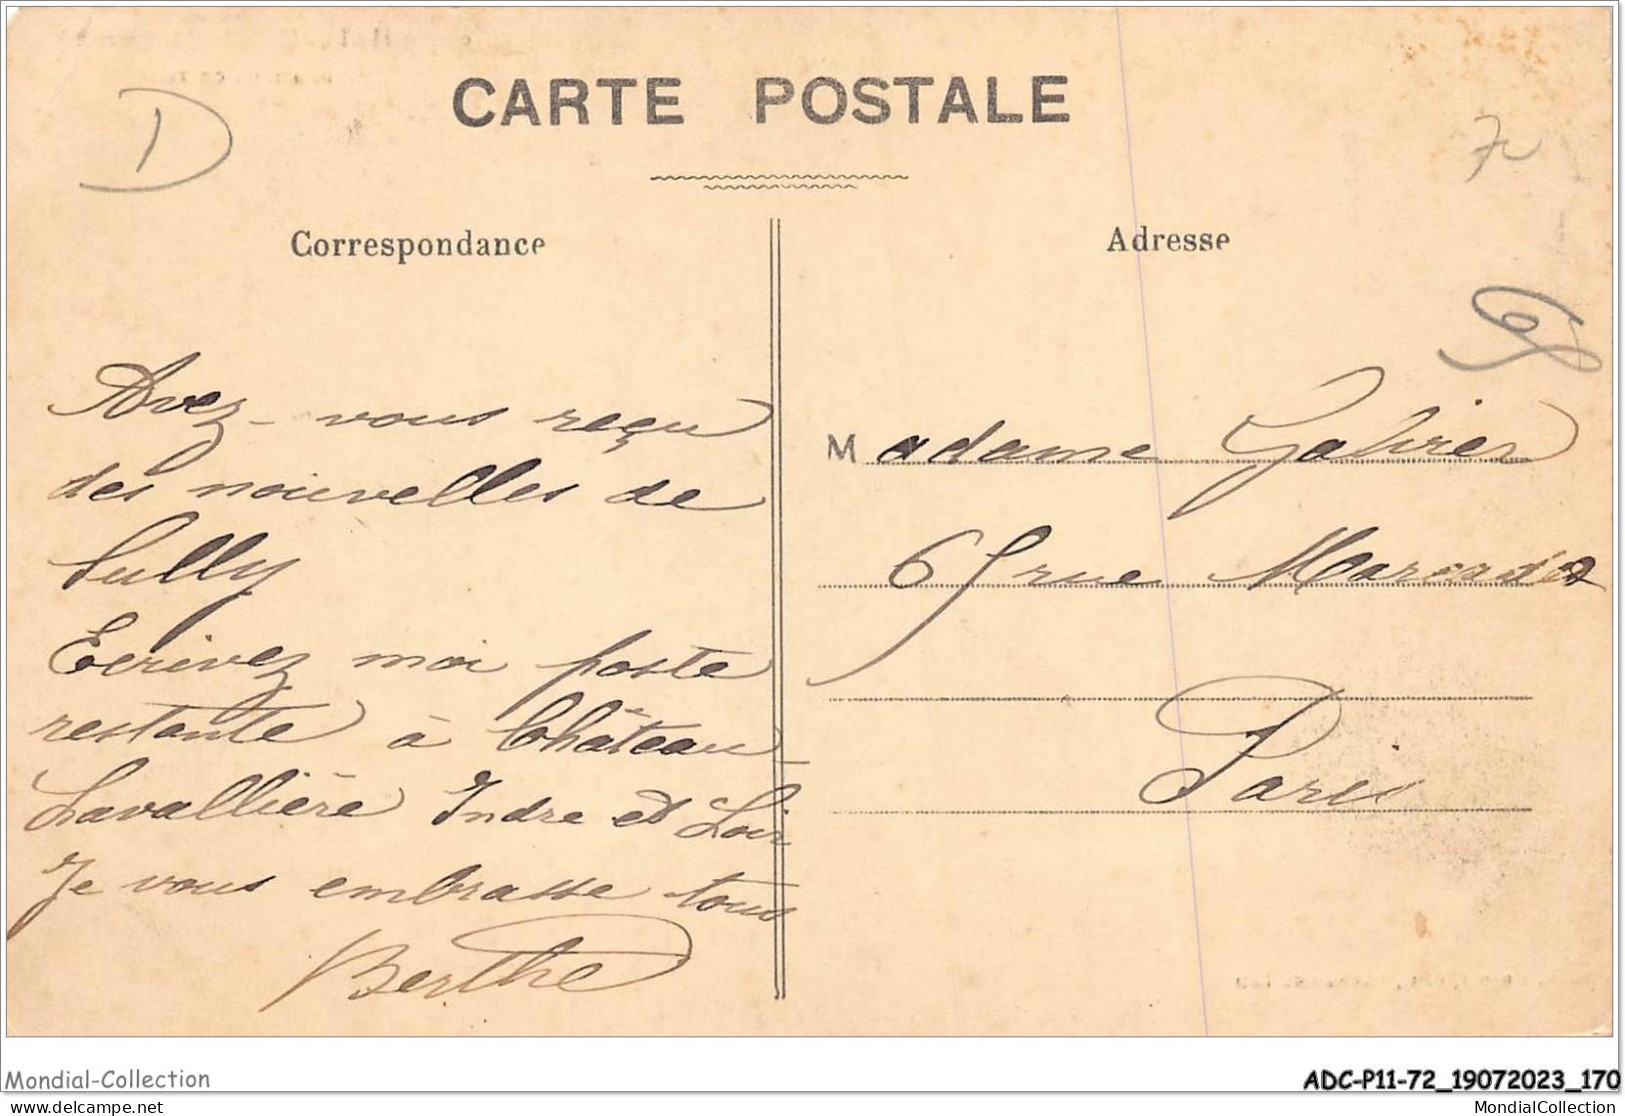 CARTE POSTALE
D
72
Correspondance
Adresse
Avez-vous reçu
des nouvelles de
Sully
Ecrivez moi poste
restante à Château-
Lavallière Indre et Loir
Je vous embrasse tous
Berthe
Madame Gabrier
65 rue Marcadet
Paris
Mondial-Collection
ADC-P11-72_19072023_170
delcampe.net
MondialCollection